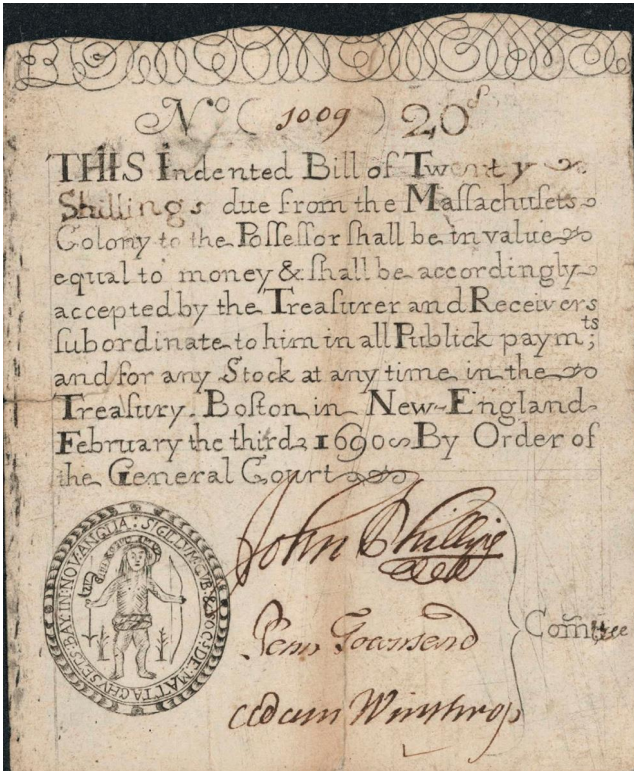 No ( 1009 ) 20s
THIS Indented Bill of Twenty
Shillings due from the Massachusets
Colony to the Poſſeſſor ſhall be in value
equal to money & ſhall be accordingly
accepted by the Treaſurer and Receivers
ſubordinate to him in all Publick paymts;
and for any Stock at any time in the
Treaſury. Boſton in New-England
February the third 1690 By Order of
the General Court
John Phillips
Penn Townsend
Adam Winthrop
Comtee
SIGILLUM: GUB: & SOC: DE: MATTACHVSETS: BAY: IN: NOV: ANGLIA: